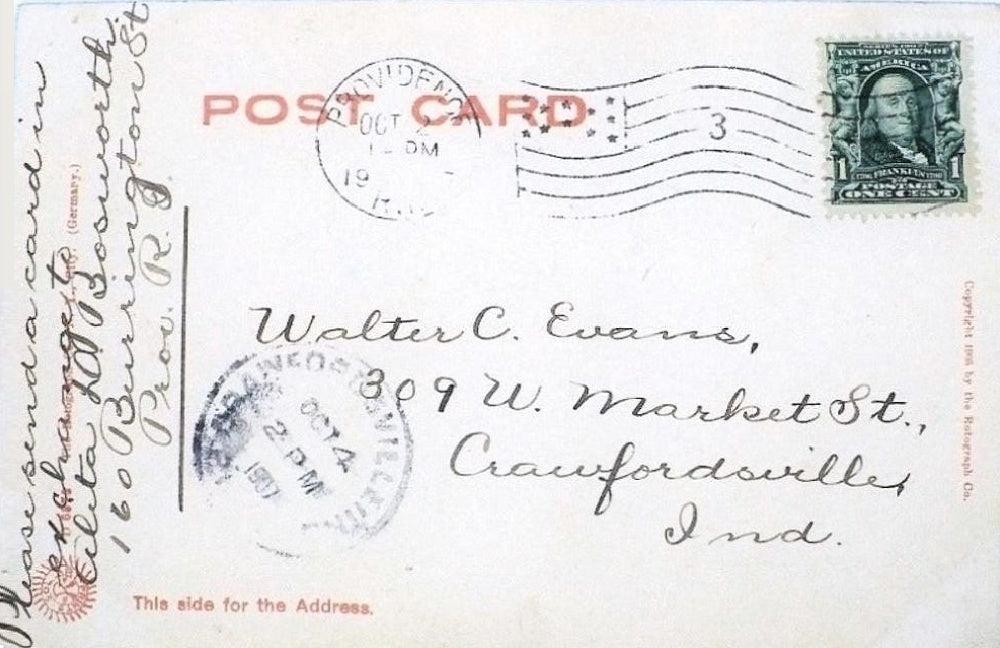 POST CARD
PROVIDENCE
OCT 2
PM
19
R.I.
3
SERIES 1902
UNITED STATES OF
AMERICA
1 FRANKLIN 1
POSTAGE
ONE CENT
Walter C. Evans,
309 W. Market St.,
Crawfordsville,
Ind.
CRAWFORDSVILLE IND
OCT 4
2 PM
1907
Please send a card in
exchange to
L. D. Bosworth.
160 Burrington St
Prov. R. I.
(Germany.)
Copyright 1905 by the Rotograph Co.
This side for the Address.